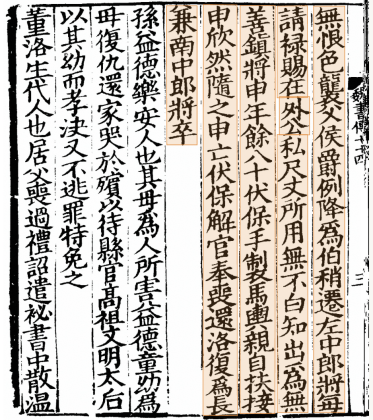 無恨色襲父侯爵例降為伯稍遷左中郎將每
請祿賜在外公私尺丈所用無不白知出為無
善鎮將申年餘八十伏保手製馬輿親自扶接
申欣然隨之申亡伏保解官奉喪還洛復為長
兼南中郎將卒
孫益德樂安人也其母為人所害益德童幼為
母復仇還家哭於殯以待縣官高祖文明太后
以其幼而孝決又不逃罪特免之
董洛生代人也居父喪過禮詔遣祕書中散溫